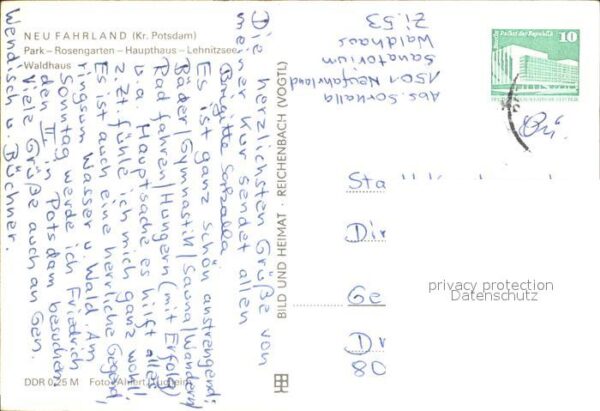 NEU FAHRLAND (Kr. Potsdam)
Park – Rosengarten – Haupthaus – Lehnitzsee
Waldhaus
Die herzlichsten Grüße von
meiner Kur sendet allen
Brigitte
Es ist ganz schön anstrengend:
Bäder/Gymnastik/Sauna/Wandern
Rad fahren/Hungern (mit Erfolg)
u.a. Hauptsache es hilft alles
z.Zt. fühle ich mich ganz wohl!
Es ist auch eine herrliche Gegend,
ringsum Wasser u. Wald. Am
Sonntag werde ich Friedrich
den II. in Potsdam besuchen.
Viele Grüße auch an Gen.
Wendisch u. Büchner.
Abs.
1501 Neufahrland
Sanatorium
Waldhaus
Zi. 53
BILD UND HEIMAT · REICHENBACH (VOGTL)
Palast der Republik
10
Sta
Dir
Ge
Dr
80
privacy protection
Datenschutz
DDR 0,25 M Foto: Ahlert,